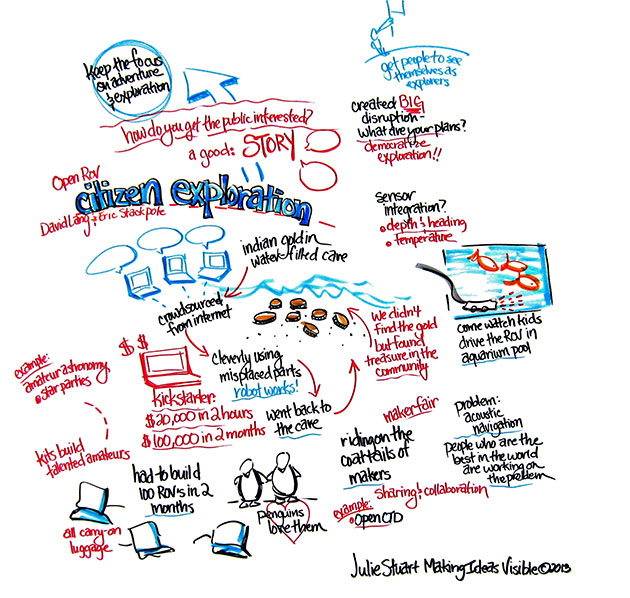 Keep the focus
on adventure
& exploration
get people to see
themselves as
explorers
how do you get the public interested?
a good: STORY
created BIG
disruption-
what are your plans?
democratize
exploration!!
Open Rov
citizen exploration
David Lang & Eric Stackpole
sensor
integration?
• depth & heading
• temperature
indian gold in
water-filled cave
crowdsourced
from internet
come watch kids
drive the ROV in
aquarium pool
we didn't
find the gold
but found
treasure in the
community
$ $
cleverly using
misplaced parts
robot works!
kickstarter:
$20,000 in 2 hours
$100,000 in 2 months
went back to
the cave
example:
amateur astronomy
• star parties
kits build
talented amateurs
makerfair
riding on the
coattails of
makers
problem:
acoustic
navigation
People who are the
best in the world
are working on
the problem
sharing & collaboration
example:
• Open CTD
had to build
100 ROV's in 2
months
all carry-on
luggage
Penguins
love them
Julie Stuart Making Ideas Visible © 2013